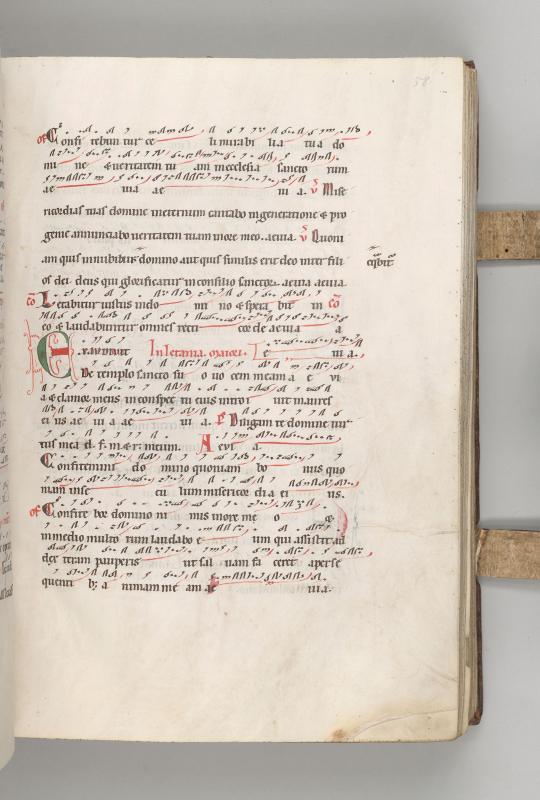 58
of Confi tebun tur ce li mirabi lia tua do
mi ne & ueritatem tu am inecclesia sancto rum
ae uia ae ui a. V Mise
ricordias tuas domine ineternum cantabo ingeneratione & pro
genie annunciabo ueritatem tuam inore meo. aeuia. V Quoni
am quis innubibus domino aut quis similis erit deo inter fili
os dei deus qui glorificatur inconsilio sanctor. aeuia aeuia.
co Letabitur iustus indo mi no & spera bit in co
eo & laudabuntur omnes recti corde aeuia a
Exaudiuit In letania. maiore. Te uia.
De templo sancto su o uo cem meam a e ui
a & clamor meus in conspec tu eius introi uit in aures
ei us ae ui a ae ui a. Ps Diligam te domine uir
tus mea d. f. m. & r. meum. A euia a
Confitemini do mino quoniam bo nus quo
niam inse cu lum misericor dia ei us.
of Confite bor domino ni mis inore me o &
inmedio multo rum laudabo e um qui assistit ad
dex teram pauperis ut sal uam fa ceret a perse
quenti b; a nimam me am ae uia.